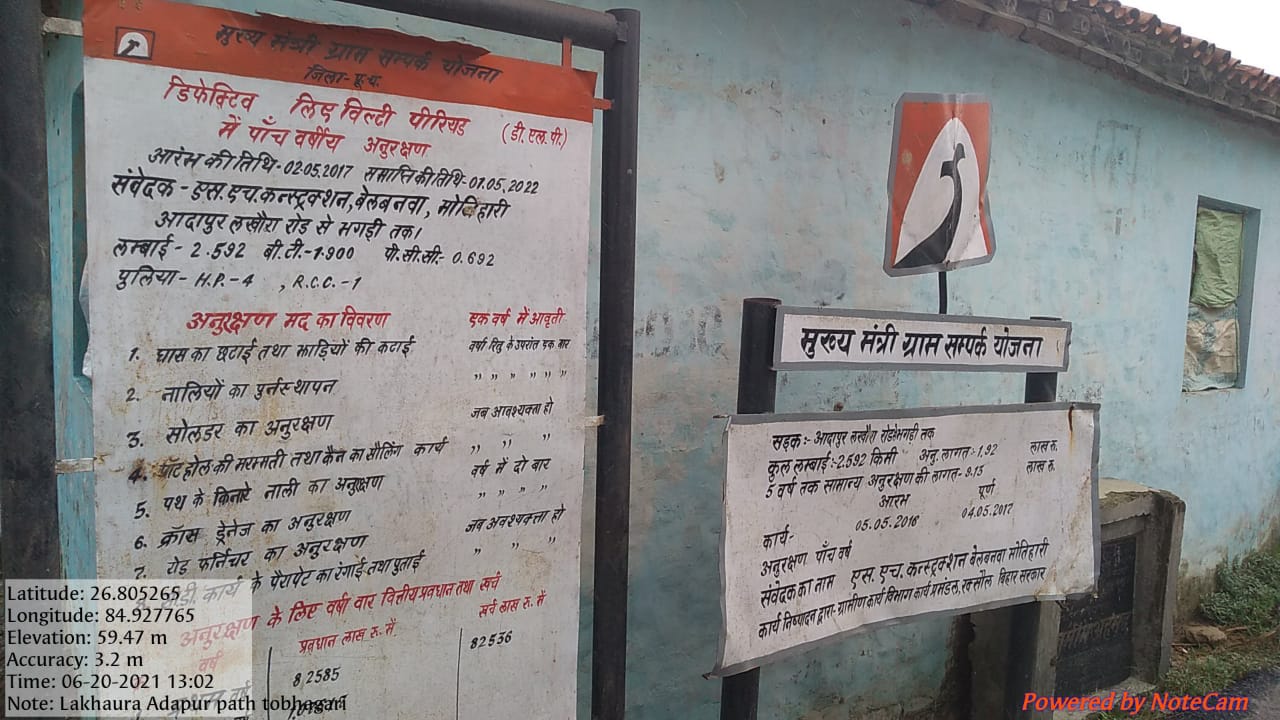 मुख्य मंत्री ग्राम सम्पर्क योजना
जिला-पू.च.
डिफेक्टिव लिए विल्टी पीरियड (डी.एल.पी.)
में पाँच वर्षीय अनुरक्षण
आरंभ की तिथि-02.05.2017 समाप्ति की तिथि-01.05.2022
संवेदक-एस.एच.कन्स्ट्रक्शन,बेलबनवा, मोतिहारी
आदापुर लखौरा रोड से भगड़ी तक।
लम्बाई- 2.592 बी.टी.-1.900 पी.सी.सी.- 0.692
पुलिया- H.P.-4 , R.C.C.-1
अनुरक्षण मद का विवरण एक वर्ष में आवृती
1. घास का छटाई तथा झाड़ियों की कटाई वर्षा रितु के उपरांत एक बार
2. नालियों का पुर्नस्थापन " " " " " "
3. सोलडर का अनुरक्षण जब आवश्यक्ता हो
4. पॉट होल की मरम्मती तथा कैन का सौलिंग कार्य " " "
5. पथ के किनारे नाली का अनुरक्षण वर्ष में दो बार
6. क्रॉस ड्रेनेज का अनुरक्षण " " " "
7. रोड फर्निचर का अनुरक्षण जब अवश्यक्ता हो
कार्य के पैरापेट का रंगाई तथा पुताई " " "
अनुरक्षण के लिए वर्षा वार वित्तीय प्रवधान तथा खर्च
वर्ष प्रवधान लाख रु. में खर्च लाख रु. में
82585 82536
मुख्य मंत्री ग्राम सम्पर्क योजना
सड़क:- आदापुर लखौरा रोड से भगड़ी तक
कुल लम्बाई:-2.592 किमी अनु. लागत:-1.92 लाख रु.
5 वर्ष तक सामान्य अनुरक्षण की लागत:-9.15 लाख रु.
आरंभ पूर्ण
कार्य- 05.05.2016 04.05.2017
अनुरक्षण पाँच वर्ष
संवेदक का नाम एस.एच.कन्स्ट्रक्शन बेलबनवा मोतिहारी
कार्य निष्पादन द्वारा- ग्रामीण कार्य विभाग कार्य प्रमंडल, रक्सौल बिहार सरकार
Latitude: 26.805265
Longitude: 84.927765
Elevation: 59.47 m
Accuracy: 3.2 m
Time: 06-20-2021 13:02
Note: Lakhaura Adapur path tobhegari
Powered by NoteCam